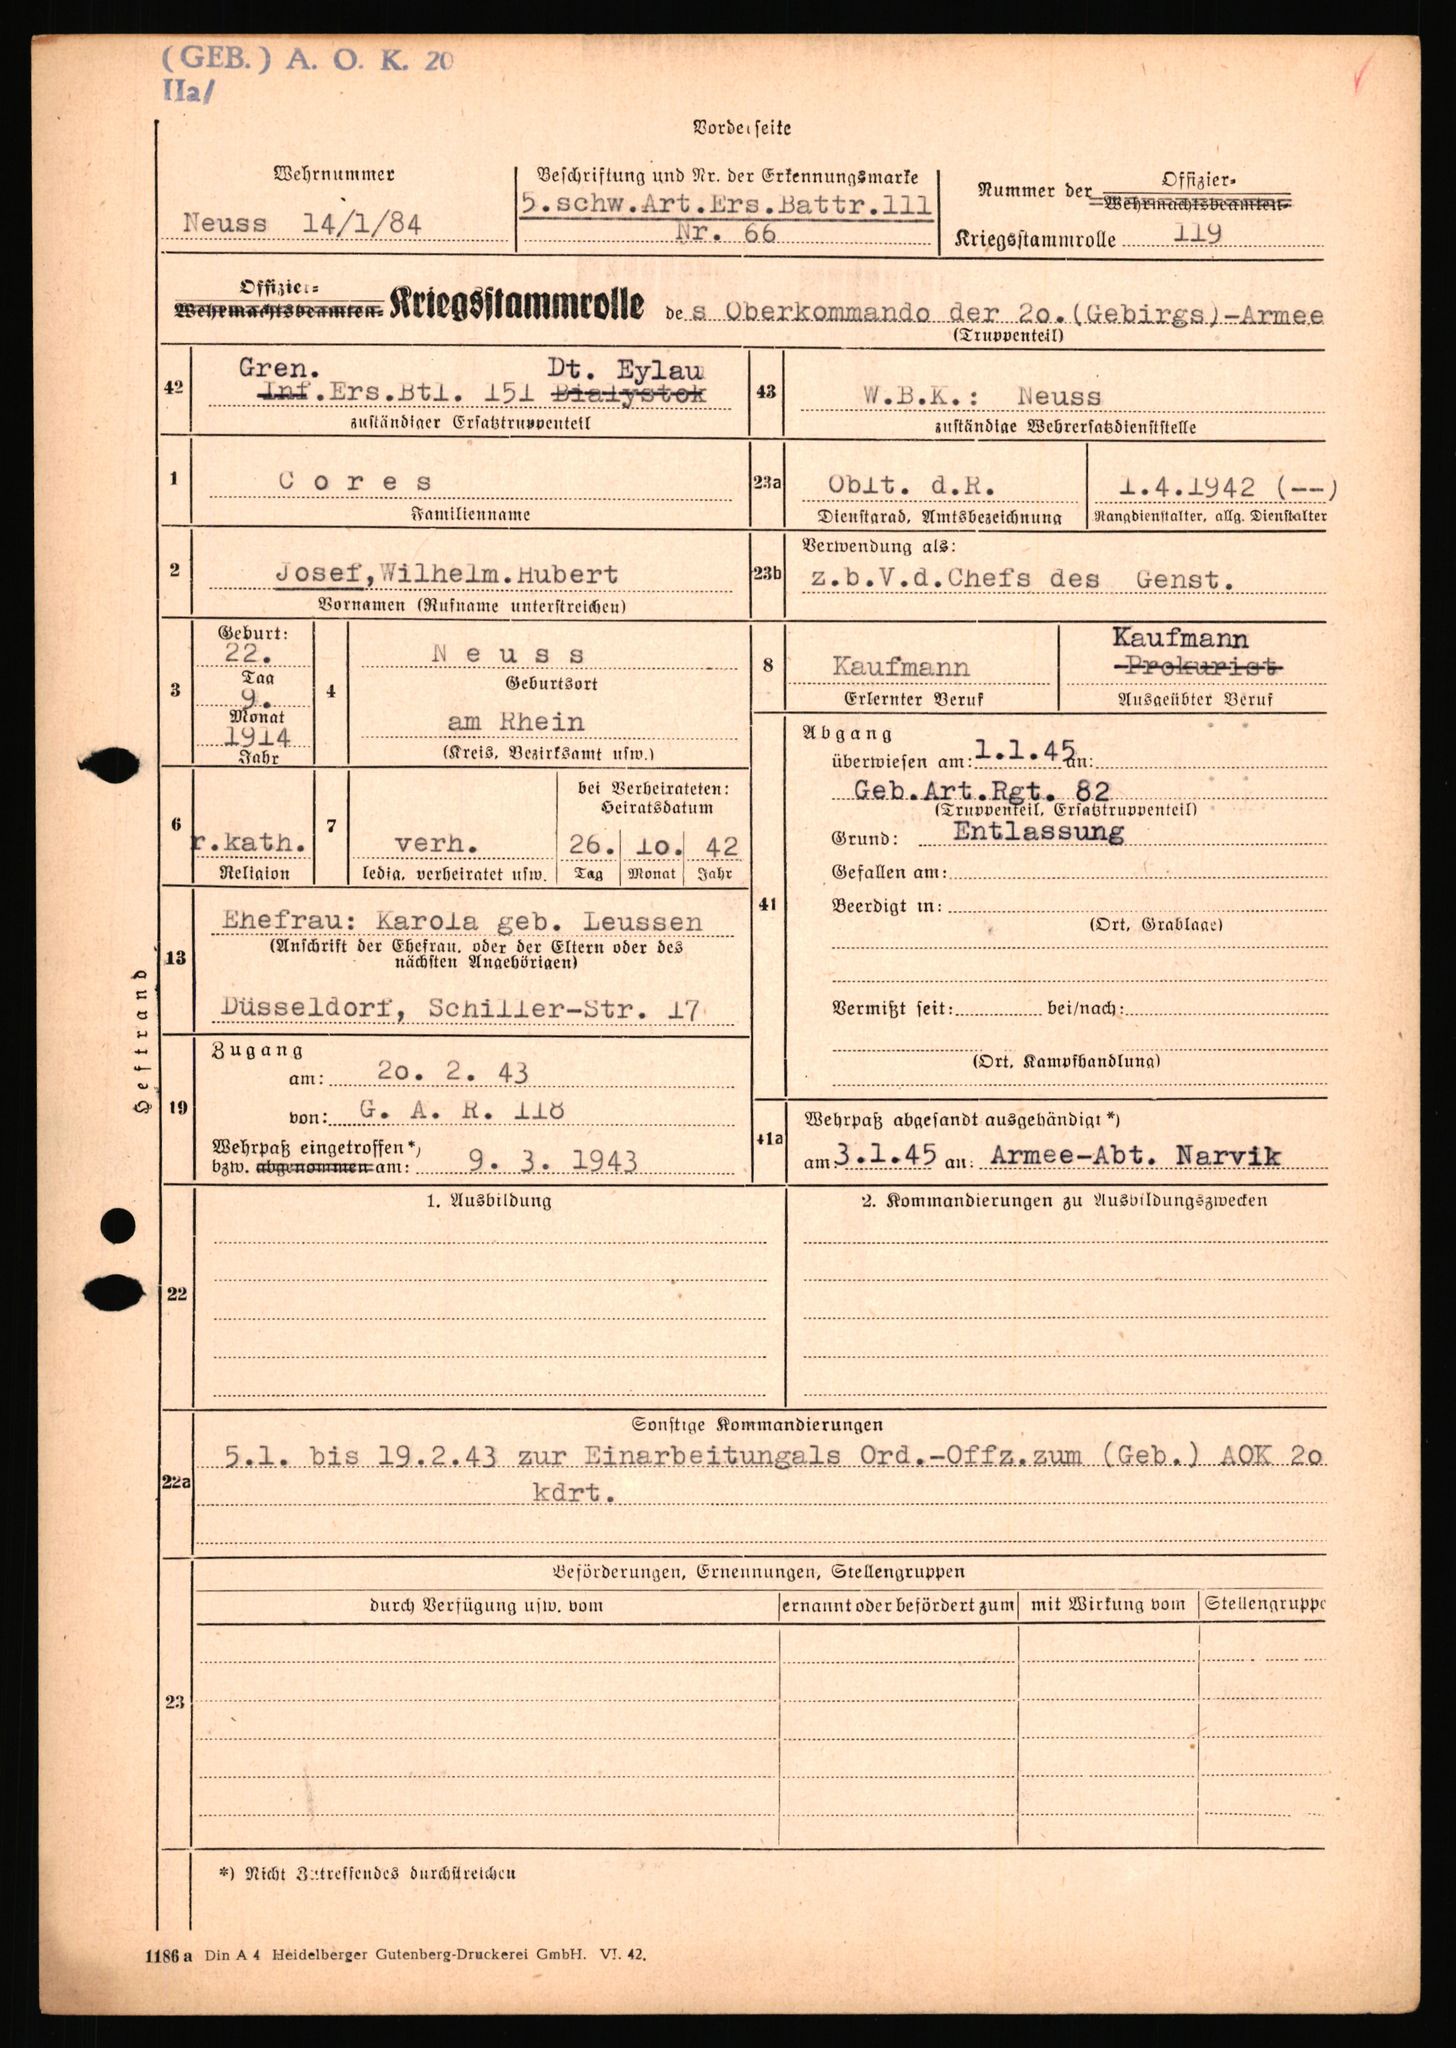 (GEB.) A. O. K. 20
IIa/
Vorderseite
Wehrnummer
Neuss 14/1/84
Beschriftung und Nr. der Erkennungsmarke
5.schw.Art.Ers.Battr.111
Nr. 66
Nummer der Offizier-
Wehrmachtsbeamten-
Kriegsstammrolle 119
Offizier-
Wehrmachtsbeamten- Kriegsstammrolle des Oberkommando der 2o.(Gebirgs)-Armee
(Truppenteil)
42
Gren. Dt. Eylau
Inf.Ers.Btl. 151 Bialystok
zuständiger Ersatztruppenteil
43
W.B.K.: Neuss
zuständige Wehrersatzdienststelle
1
C o r e s
Familienname
23a
Oblt. d.R.
Dienstgrad, Amtsbezeichnung
1.4.1942 (--)
Rangdienstalter, allg. Dienstalter
2
Josef,Wilhelm.Hubert
Vornamen (Rufname unterstreichen)
23b
Verwendung als:
z.b.V.d.Chefs des Genst.
3
Geburt:
22.
Tag
9.
Monat
1914
Jahr
4
N e u s s
Geburtsort
am Rhein
(Kreis, Bezirksamt usw.)
8
Kaufmann
Erlernter Beruf
Kaufmann
Prokurist
Ausgeübter Beruf
6
r.kath.
Religion
7
verh.
ledig, verheiratet usw.
bei Verheirateten:
Heiratsdatum
26. 1o. 42
Tag Monat Jahr
41
Abgang
überwiesen am: 1.1.45 an:
Geb.Art.Rgt. 82
(Truppenteil, Ersatztruppenteil)
Grund: Entlassung
Gefallen am:
Beerdigt in:
(Ort, Grablage)
Vermißt seit: bei/nach:
(Ort, Kampfhandlung)
13
Ehefrau: Karola geb. Leussen
(Anschrift der Ehefrau, oder der Eltern oder des
nächsten Angehörigen)
Düsseldorf, Schiller-Str. 17
Heftrand
19
Zugang
am: 2o. 2. 43
von: G. A. R. 118
Wehrpaß eingetroffen*)
bzw. abgenommen am: 9. 3. 1943
41a
Wehrpaß abgesandt ausgehändigt*)
am: 3.1.45 an: Armee-Abt. Narvik
22
1. Ausbildung
2. Kommandierungen zu Ausbildungszwecken
22a
Sonstige Kommandierungen
5.1. bis 19.2.43 zur Einarbeitungals Ord.-Offz.zum (Geb.) AOK 2o
kdrt.
23
Beförderungen, Ernennungen, Stellengruppen
durch Verfügung usw. vom
ernannt oder befördert zum
mit Wirkung vom
Stellengruppe
*) Nicht Zutreffendes durchstreichen
1186 a Din A 4 Heidelberger Gutenberg-Druckerei GmbH. VI. 42.